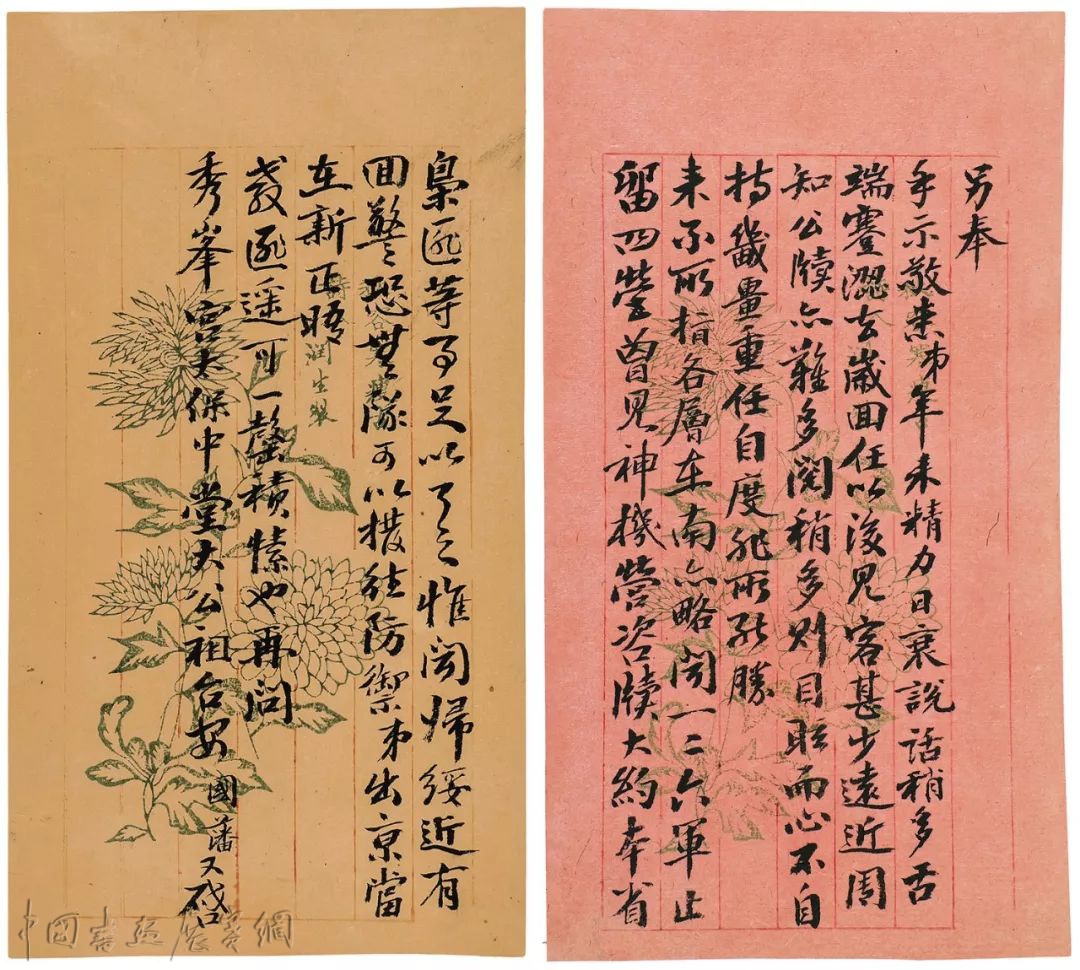 另奉
手示敬悉弟年来精力日衰說話稍多舌
端蹇澀去歲回任以後見客甚少遠近周
知公牘亦難多閱稍多則目眩而心不自
持畿畺重任自度非所能勝
来示所指各層在南亦略聞一二六軍止
留四營曾見神機營咨牘大約本省
梟匪等事足以了之惟聞歸綏近有
回警恐無隊可以撥往防禦弟出京當
在新正晤
教匪遥可一罄積愫也再問
秀峯宫太保中堂大公祖台安 國藩又啓
潤生製
中國書法展賽網